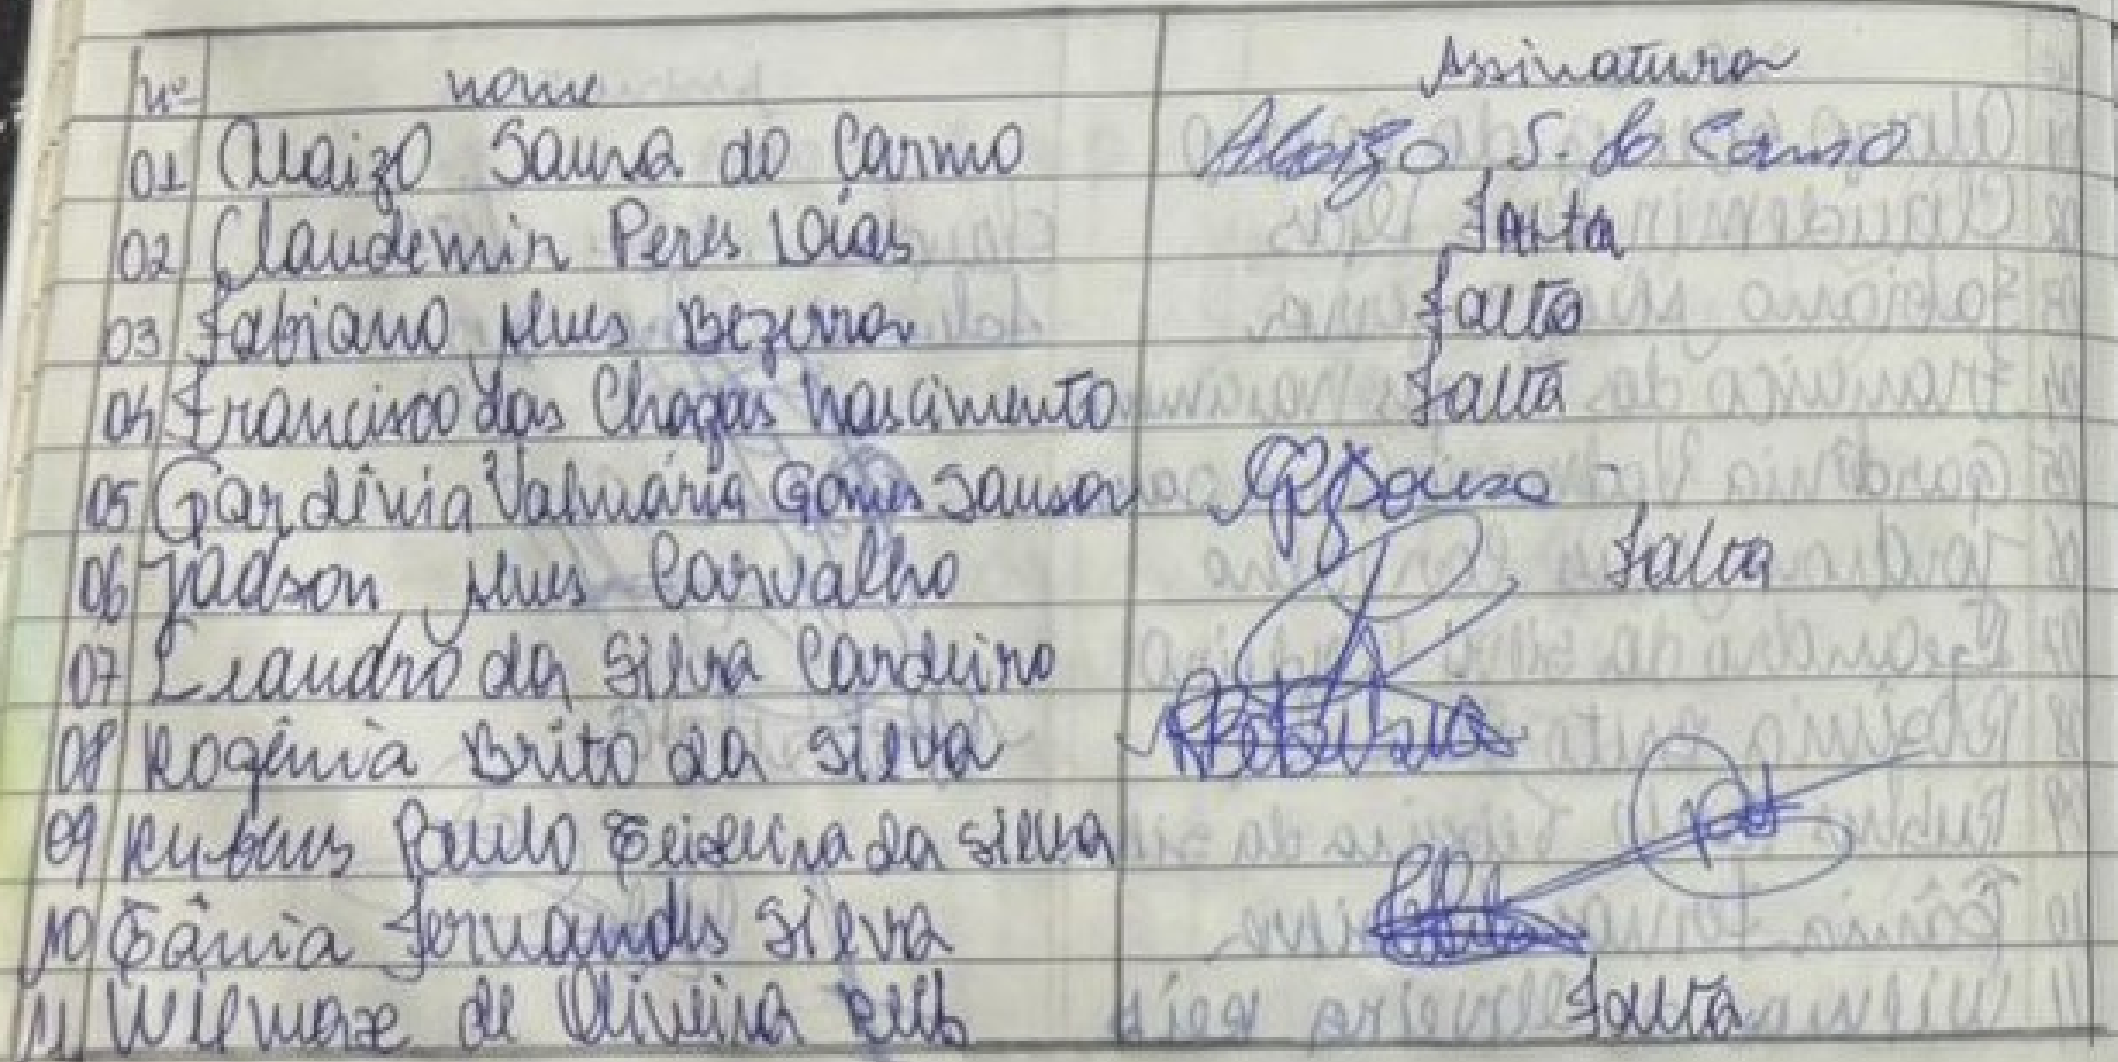 nº nome Assinatura
01 Alaizo Sousa do Carmo Alaizo S. do Carmo
02 Claudemir Peres Dias Falta
03 Fabiano Alves Bezerra Falta
04 Francisco das Chagas Nascimento Falta
05 Gardênia Valmária Gomes Sousa Souza
06 Jadson Alves Carvalho Falta
07 Leandro da Silva Cordeiro
08 Rogênia Brito da Silva
09 Rubens Paulo Teixeira da Silva
10 Tânia Fernandes Silva
11 Wilmax de Oliveira Reis Falta